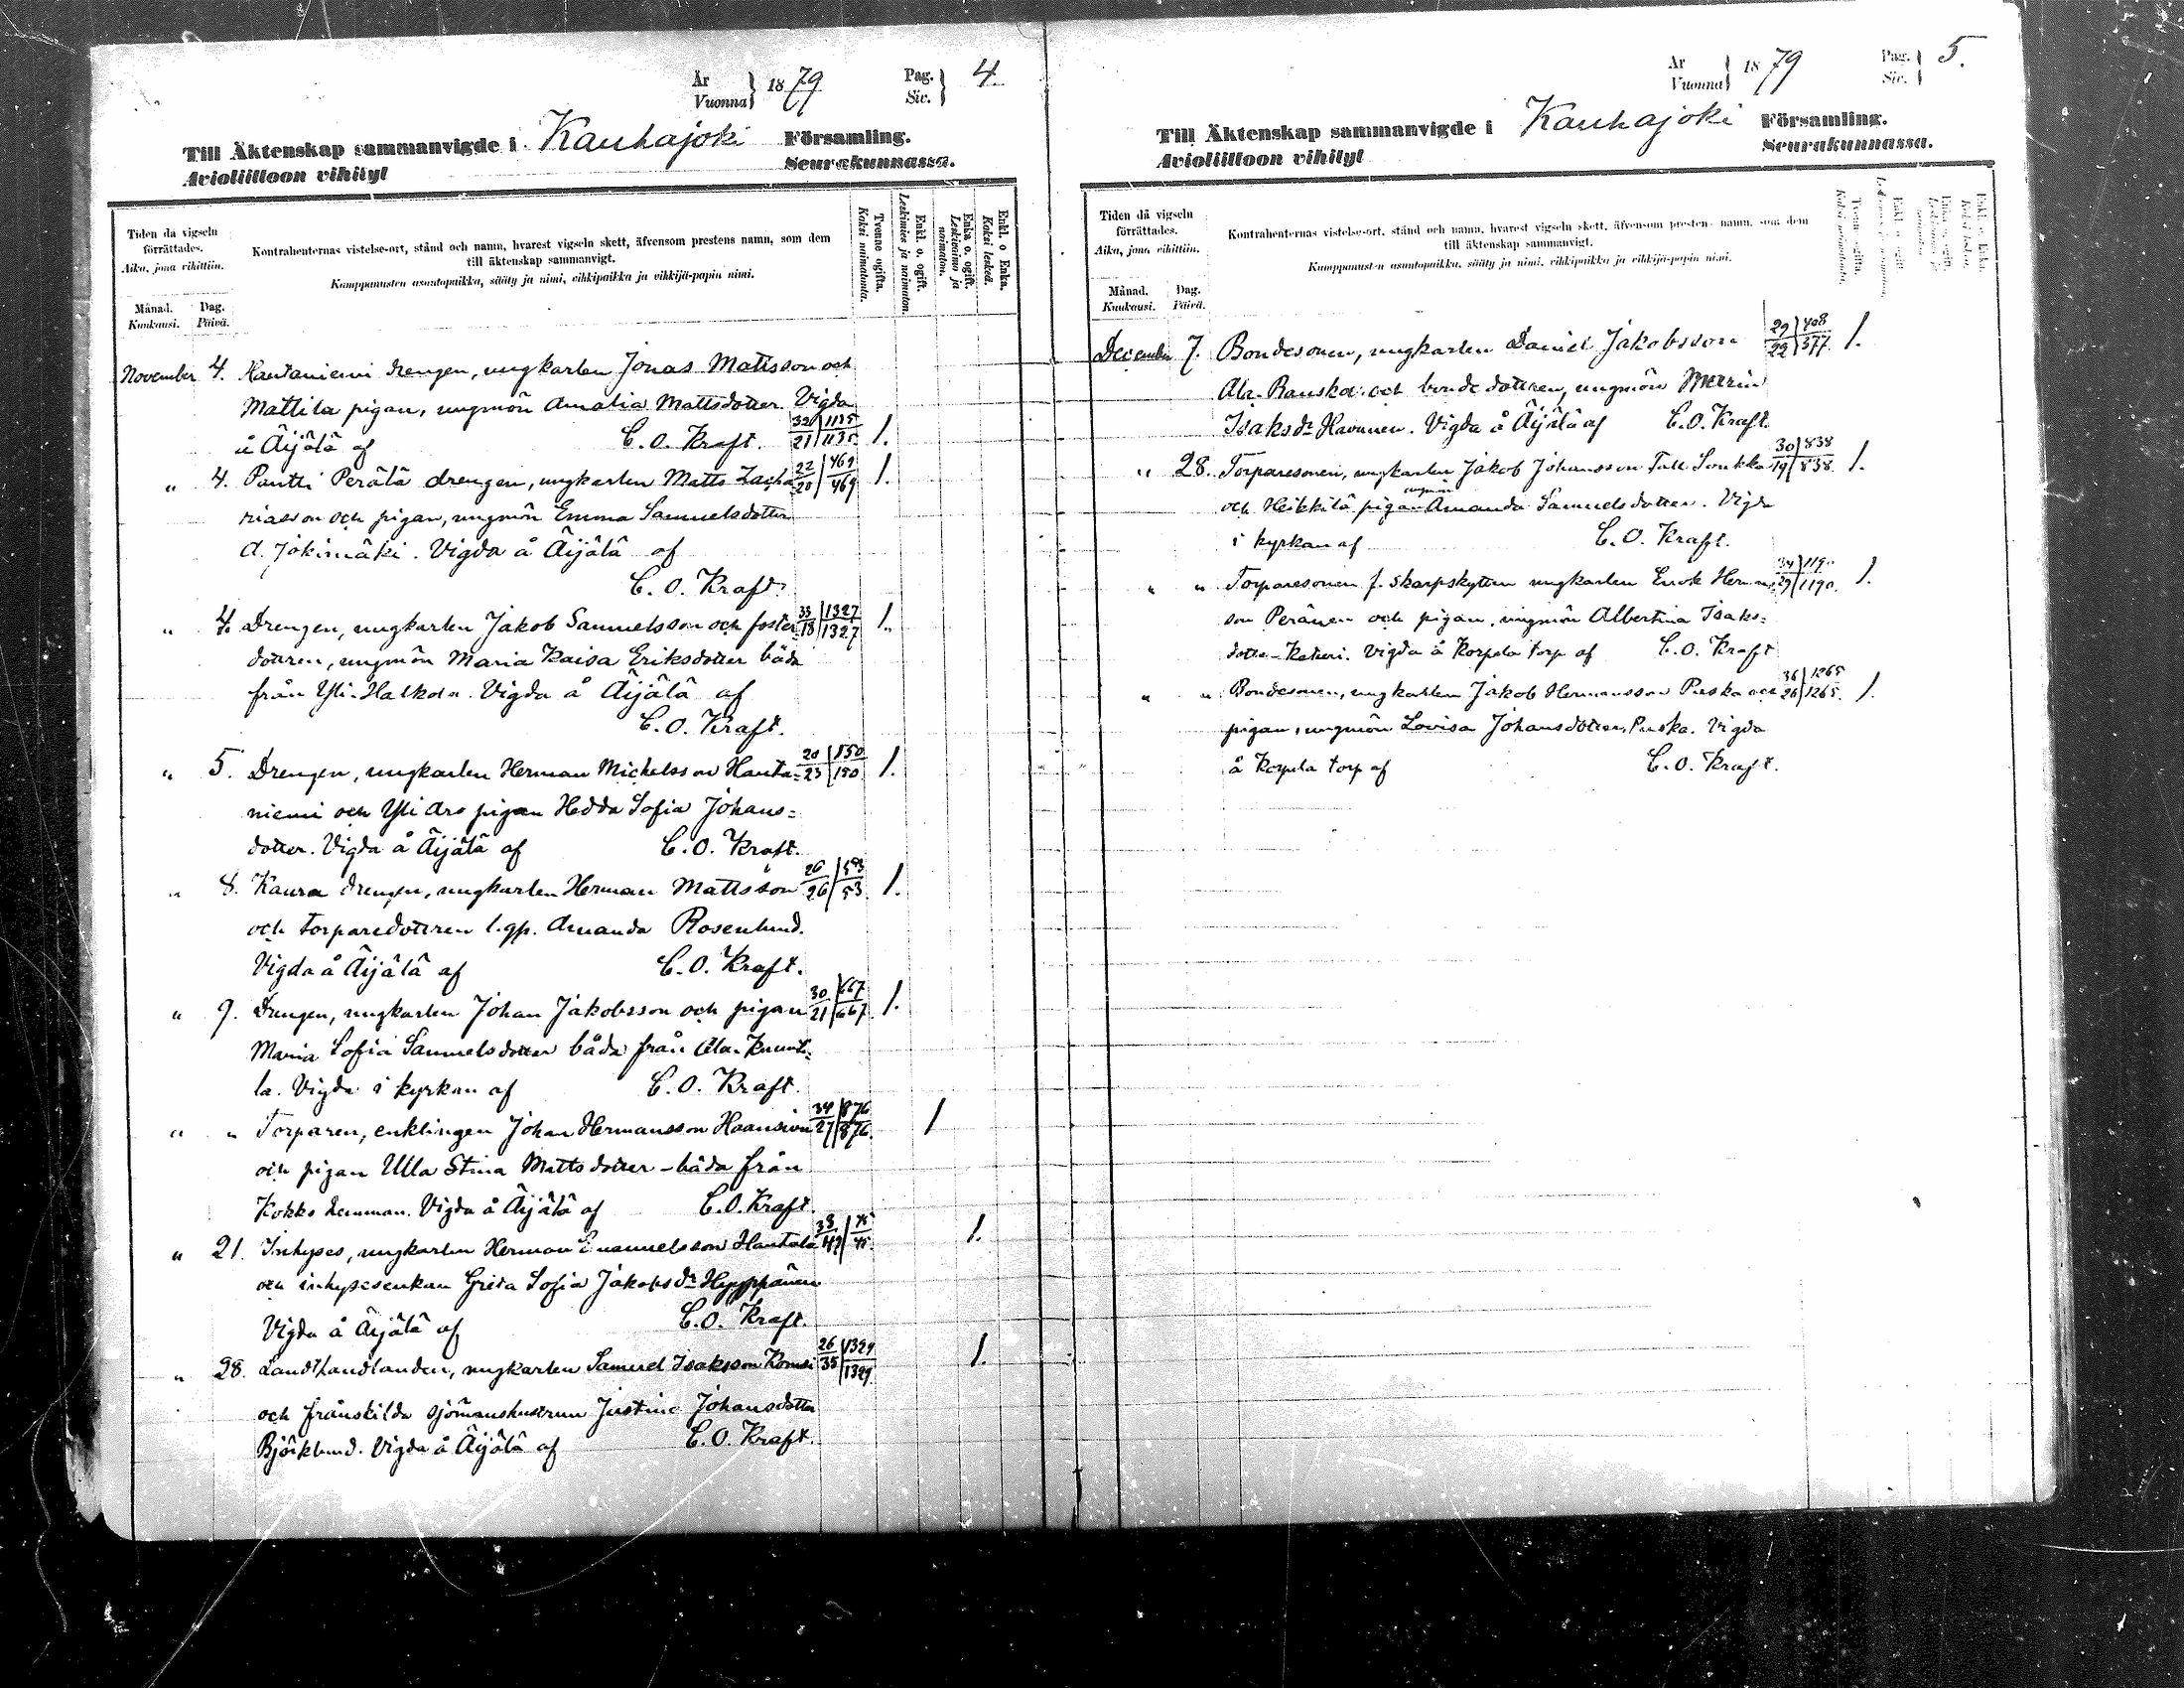 År
Vuonna 1879 Pag. Siv. 4.
Till Äktenskap sammanvigde i Kauhajoki Församling.
Avioliittoon vihityt Seurakunnassa.
Tiden då vigseln förrättades.
Aika, jona vihittiin.
Månad. Kuukausi.
Dag. Päivä.
Kontrahenternas vistelse-ort, stånd och namn, hvarest vigseln skett, äfvensom prestens namn, som dem
till äktenskap sammanvigt.
Kumppanusten asuntopaikka, sääty ja nimi, vihkipaikka ja vihkijä-papin nimi.
Tvenne ogifta. Kaksi naimatonta.
Enkl. o. ogift. Leskimies ja naimaton.
Enka o. ogift. Leskivaimo ja naimaton.
Enkl. o Enka. Kaksi leskeä.
November 4. Hautaniemi drengen, ungkarlen Jonas Mattsson och
Mattila pigan, ungmön Amalia Mattsdotter. Vigda
å Äijälä af C. O. Kraft. 32/21 1135/1135 1.
" 4. Pantti Perälä drengen, ungkarlen Matts Zacha- 22/20 469/469 1.
riasson och pigan, ungmön Emma Samuelsdotter
A. Jokimäki. Vigda å Äijälä af
C. O. Kraft.
" 4. Drengen, ungkarlen Jakob Samuelsson och foster- 33/18 1327/1327 1.
dottren, ungmön Maria Kaisa Eriksdotter båda
från Yli-Halkola. Vigda å Äijälä af
C. O. Kraft.
" 5. Drengen, ungkarlen Herman Michelsson Hauta= 20/23 150/150 1.
niemi och Yli Aro pigan Hedda Sofia Johans=
dotter. Vigda å Äijälä af C. O. Kraft.
" 8. Kaura drengen, ungkarlen Herman Mattsson 26/26 53/53 1.
och torparedottren l.qp. Amanda Rosenlund.
Vigda å Äijälä af C. O. Kraft.
" 9. Drengen, ungkarlen Johan Jakobsson och pigan 30/21 667/667 1.
Maria Sofia Samuelsdotter båda från Ala-Knuuti-
la. Vigda i kyrkan af C. O. Kraft.
" " Torparen, enklingen Johan Hermansson Haansivu 34/27 876/876. 1
och pigan Ulla Stina Mattsdotter - båda från
Kokko hemman. Vigda å Äijälä af C. O. Kraft.
" 21. Inhyses, ungkarlen Herman Emanuelsson Hautala 1.
och inhysesenkan Greta Sofia Jakobsdr Hyyppänen
Vigda å Äijälä af C. O. Kraft.
" 28. Landthandlanden, ungkarlen Samuel Isaksson Komsi 26/35 1329/1329. 1.
och frånskilda sjömanshustrun Justina Johansdotter
Björklund. Vigda å Äijälä af C. O. Kraft.
År
Vuonna 1879 Pag. Siv. 5.
Till Äktenskap sammanvigde i Kauhajoki Församling.
Avioliittoon vihityt Seurakunnassa.
Tiden då vigseln förrättades.
Aika, jona vihittiin.
Månad. Kuukausi.
Dag. Päivä.
Kontrahenternas vistelse-ort, stånd och namn, hvarest vigseln skett, äfvensom prestens namn, som dem
till äktenskap sammanvigt.
Kumppanusten asuntopaikka, sääty ja nimi, vihkipaikka ja vihkijä-papin nimi.
December 7. Bondesonen, ungkarlen Daniel Jakobsson 29/22 408/577. 1.
Ala-Rauska och bondedottren, ungmön
Isaksdr Havunen. Vigda å Äijälä af C. O. Kraft.
" 28. Torparesonen, ungkarlen Jakob Johansson Tall Soukka 30/19 838/838. 1.
och Heikkilä pigan ungmön Amanda Samuelsdotter. Vigda
i kyrkan af C. O. Kraft.
" " Torparesonen f. skarpskytten ungkarlen Enok Herman- 34/29 1190/1190. 1.
son Peränen och pigan, ungmön Albertina Isaks=
dotter Keturi. Vigda å Korpela torp af C. O. Kraft
" " Bondesonen, ungkarlen Jakob Hermansson Puska och 36/26 1265/1265. 1.
pigan, ungmön Lovisa Johansdotter Puska. Vigda
å Korpela torp af C. O. Kraft.